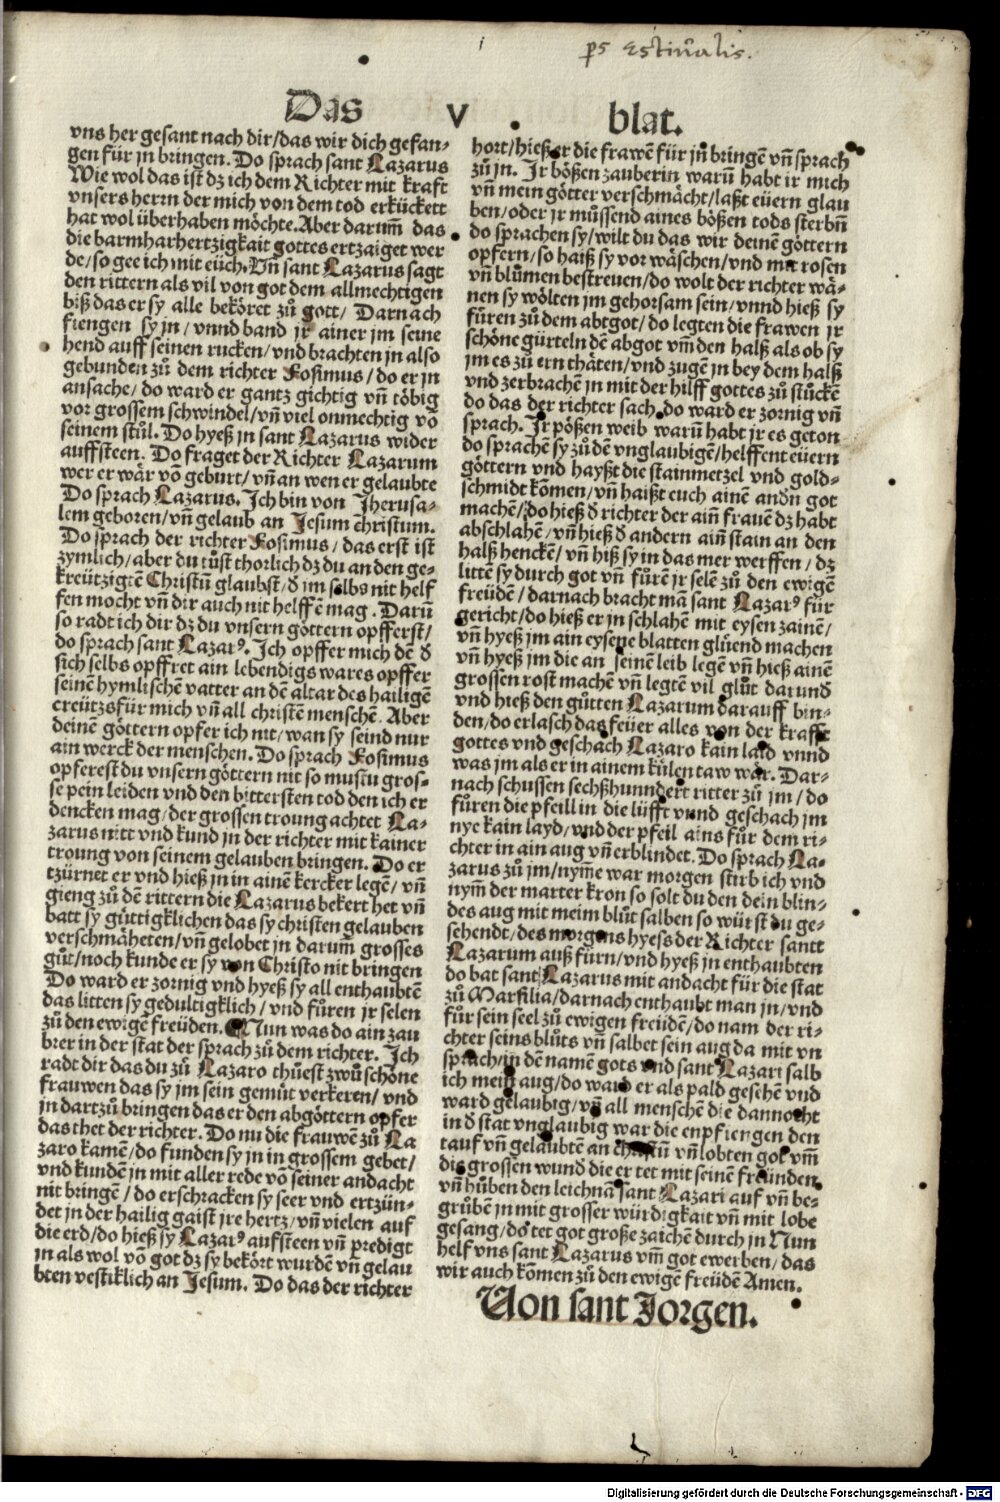 ps Estiualis.
Das V blat.
vns her gesant nach dir/das wir dich gefan-
gen für jn bringen. Do sprach sant Lazarus
Wie wol das ist dz ich dem Richter mit kraft
vnsers herrn der mich von dem tod erkückett
hat wol überhaben möchte. Aber darum̃ das
die barmharhertzigkait gottes ertzaiget wer
de/so gee ich mit eüch. Vñ sant Lazarus sagt
den rittern als vil von got dem allmechtigen
biß das er sy alle beköret zů gott/ Darnach
fiengen sy jn/vnnd band jr ainer jm seine
hend auff seinen rucken/vnd brachten jn also
gebunden zů dem richter Fosimus/do er jn
ansache/do ward er gantz gichtig vñ töbig
vor grossem schwindel/vñ viel onmechtig võ
seinem stůl. Do hyeß jn sant Lazarus wider
auffsteen. Do fraget der Richter Lazarum
wer er wär võ geburt/vñ an wen er gelaubte
Do sprach Lazarus. Ich bin von Jherusa-
lem geboren/vñ gelaub an Jesum christum.
Do sprach der richter Fosimus/das erst ist
zymlich/aber du tůst thorlich dz du an den ge-
kreützigtẽ Christũ glaubst/ð im selbs nit helf
fen mocht vñ dir auch nit helffẽ mag. Darũ
so radt ich dir dz du vnsern göttern opfferst/
do sprach sant Lazarꝰ. Ich opffer mich dẽ ð
sich selbs opffret ain lebendigs wares opffer
seinẽ hymlischẽ vatter an dẽ altar des hailigẽ
creützs für mich vñ all christẽ menschẽ. Aber
deinẽ göttern opfer ich nit/wan sy seind nur
ain werck der menschen. Do sprach Fosimus
opferest du vnsern göttern nit so mustu gros-
se pein leiden vnd den bittersten tod den ich er
dencken mag/der grossen troung achtet La-
zarus nitt vnd kund jn der richter mit kainer
troung von seinem gelauben bringen. Do er
tzürnet er vnd hieß jn in ainẽ kercker legẽ/vñ
gieng zů dẽ rittern die Lazarus bekert het vñ
batt sy güttigklichen das sy christen gelauben
verschmäheten/vñ gelobet jn darum̃ grosses
gůt/noch kunde er sy von Christo nit bringen
Do ward er zornig vnd hyeß sy all enthaubtẽ
das litten sy gedultigklich/vnd fůren jr selen
zů den ewigẽ freüden. Nun was do ain zau
brer in der stat der sprach zů dem richter. Ich
radt dir das du zů Lazaro thüest zwů schöne
frauwen das sy jm sein gemüt verkeren/vnd
jn dartzů bringen das er den abgöttern opfer
das thet der richter. Do nu die frauwẽ zů La
zaro kamẽ/do funden sy jn in grossem gebet/
vnd kundẽ jn mit aller rede võ seiner andacht
nit bringẽ/do erschracken sy seer vnd ertzün-
det jn der hailig gaist jre hertz/vñ vielen auf
die erd/do hieß sy Lazarꝰ aufsteen vñ predigt
jn als wol võ got dz sy bekört wurdẽ vñ gelau
bten vestiklich an Jesum. Do das der richter
hort/hieß er die frawẽ für jñ bringẽ vñ sprach
zů jn. Jr bößen zauberin warũ habt ir mich
vñ mein götter verschmächt/laßt eüern glau
ben/oder jr müssend aines bößen tods sterbñ
do sprachen sy/wilt du das wir deinẽ göttern
opfern/so haiß sy vor wäschen/vnd mit rosen
vñ blůmen bestreuen/do wolt der richter wä-
nen sy wölten jm gehorsam sein/vnnd hieß sy
füren zů dem abtgot/do legten die frawen jr
schöne gürteln dẽ abgot vm̃ den halß als ob sy
jm es zů ern thäten/vnd zugẽ jn bey dem halß
vnd zerbrachẽ jn mit der hilff gottes zů stückẽ
do das der richter sach do ward er zornig vñ
sprach. Jr pößen weib warũ habt jr es geton
do sprachẽ sy zů dẽ vnglaubigẽ/helffent eüern
göttern vnd hayßt die stainmetzel vnd gold-
schmidt kõmen/vñ haißt euch ainẽ andn got
machẽ/do hieß ð richter der aiñ frauẽ dz habt
abschlahẽ/vñ hieß ð andern aiñ stain an den
halß henckẽ/vñ hiß sy in das mer werffen/dz
littẽ sy durch got vñ fůrẽ jr selẽ zů den ewigẽ
freüdẽ/darnach bracht mã sant Lazarꝰ für
gericht/do hieß er jn schlahẽ mit eysen zainẽ/
vñ hyeß jm ain eysene blatten glüend machen
vñ hyeß jm die an seinẽ leib legẽ vñ hieß ainẽ
grossen rost machẽ vñ legtẽ vil glůt darund
vnd hieß den gůtten Lazarum darauff bin-
den/do erlasch das feüer alles von der krafft
gottes vnd geschach Lazaro kain laid vnnd
was jm als er in ainem külen taw wär. Dar-
nach schussen sechßhunndert ritter zů jm/do
fůren die pfeill in die lüfft vnnd geschach jm
nye kain layd/vnd der pfeil ains fůr dem ri-
chter in ain aug vñ erblindet. Do sprach La-
zarus zů jm/nym̃e war morgen stirb ich vnd
nym̃ der marter kron so solt du den dein blin-
des aug mit meim blůt salben so würst du ge-
sehendt/des morgens hyess der Richter santt
Lazarum auß fürn/vnd hyeß jn enthaubten
do bat sant Lazarus mit andacht für die stat
zů Marsilia/darnach enthaubt man jn/vnd
fůr sein seel zů ewigen freüdẽ/do nam der ri-
chter seins blůts vñ salbet sein aug da mit vn
sprach/in dẽ namẽ gots vnd sant Lazari salb
ich mein aug/do ward er als pald gesehẽ vnd
ward gelaubig/vñ all menschẽ die dannocht
in ð stat vnglaubig war die enpfiengen den
tauf vñ gelaubtẽ an vñ lobten got vm̃
die grossen wund die er tet mit seinẽ freünden
vñ hůben den leichnã sant Lazari auf vñ be-
grůbẽ jn mit grosser wirdigkait vñ mit lobe
gesang/do tet got große zaichẽ durch jn Nun
helf vns sant Lazarus vm̃ got ewerben/das
wir auch kõmen zů den ewigẽ freüdẽ Amen.
Von sant Jorgen.
Digitalisierung gefördert durch die Deutsche Forschungsgemeinschaft - DFG